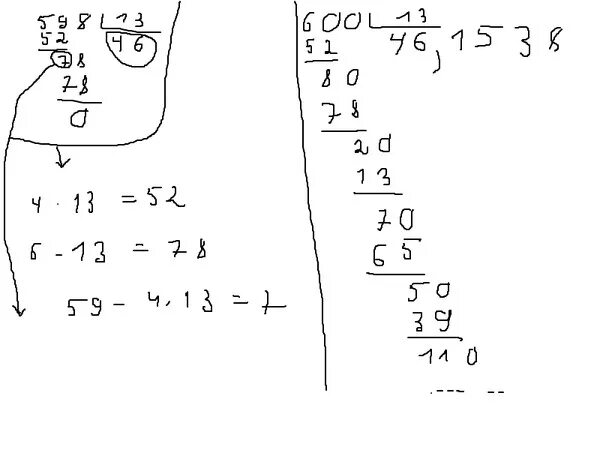 598 13
52 46
78
78
0
4 · 13 = 52
6 - 13 = 78
59 - 4 · 13 = 7
600 13
52 46,1538
80
78
20
13
70
65
50
39
110
.--- --